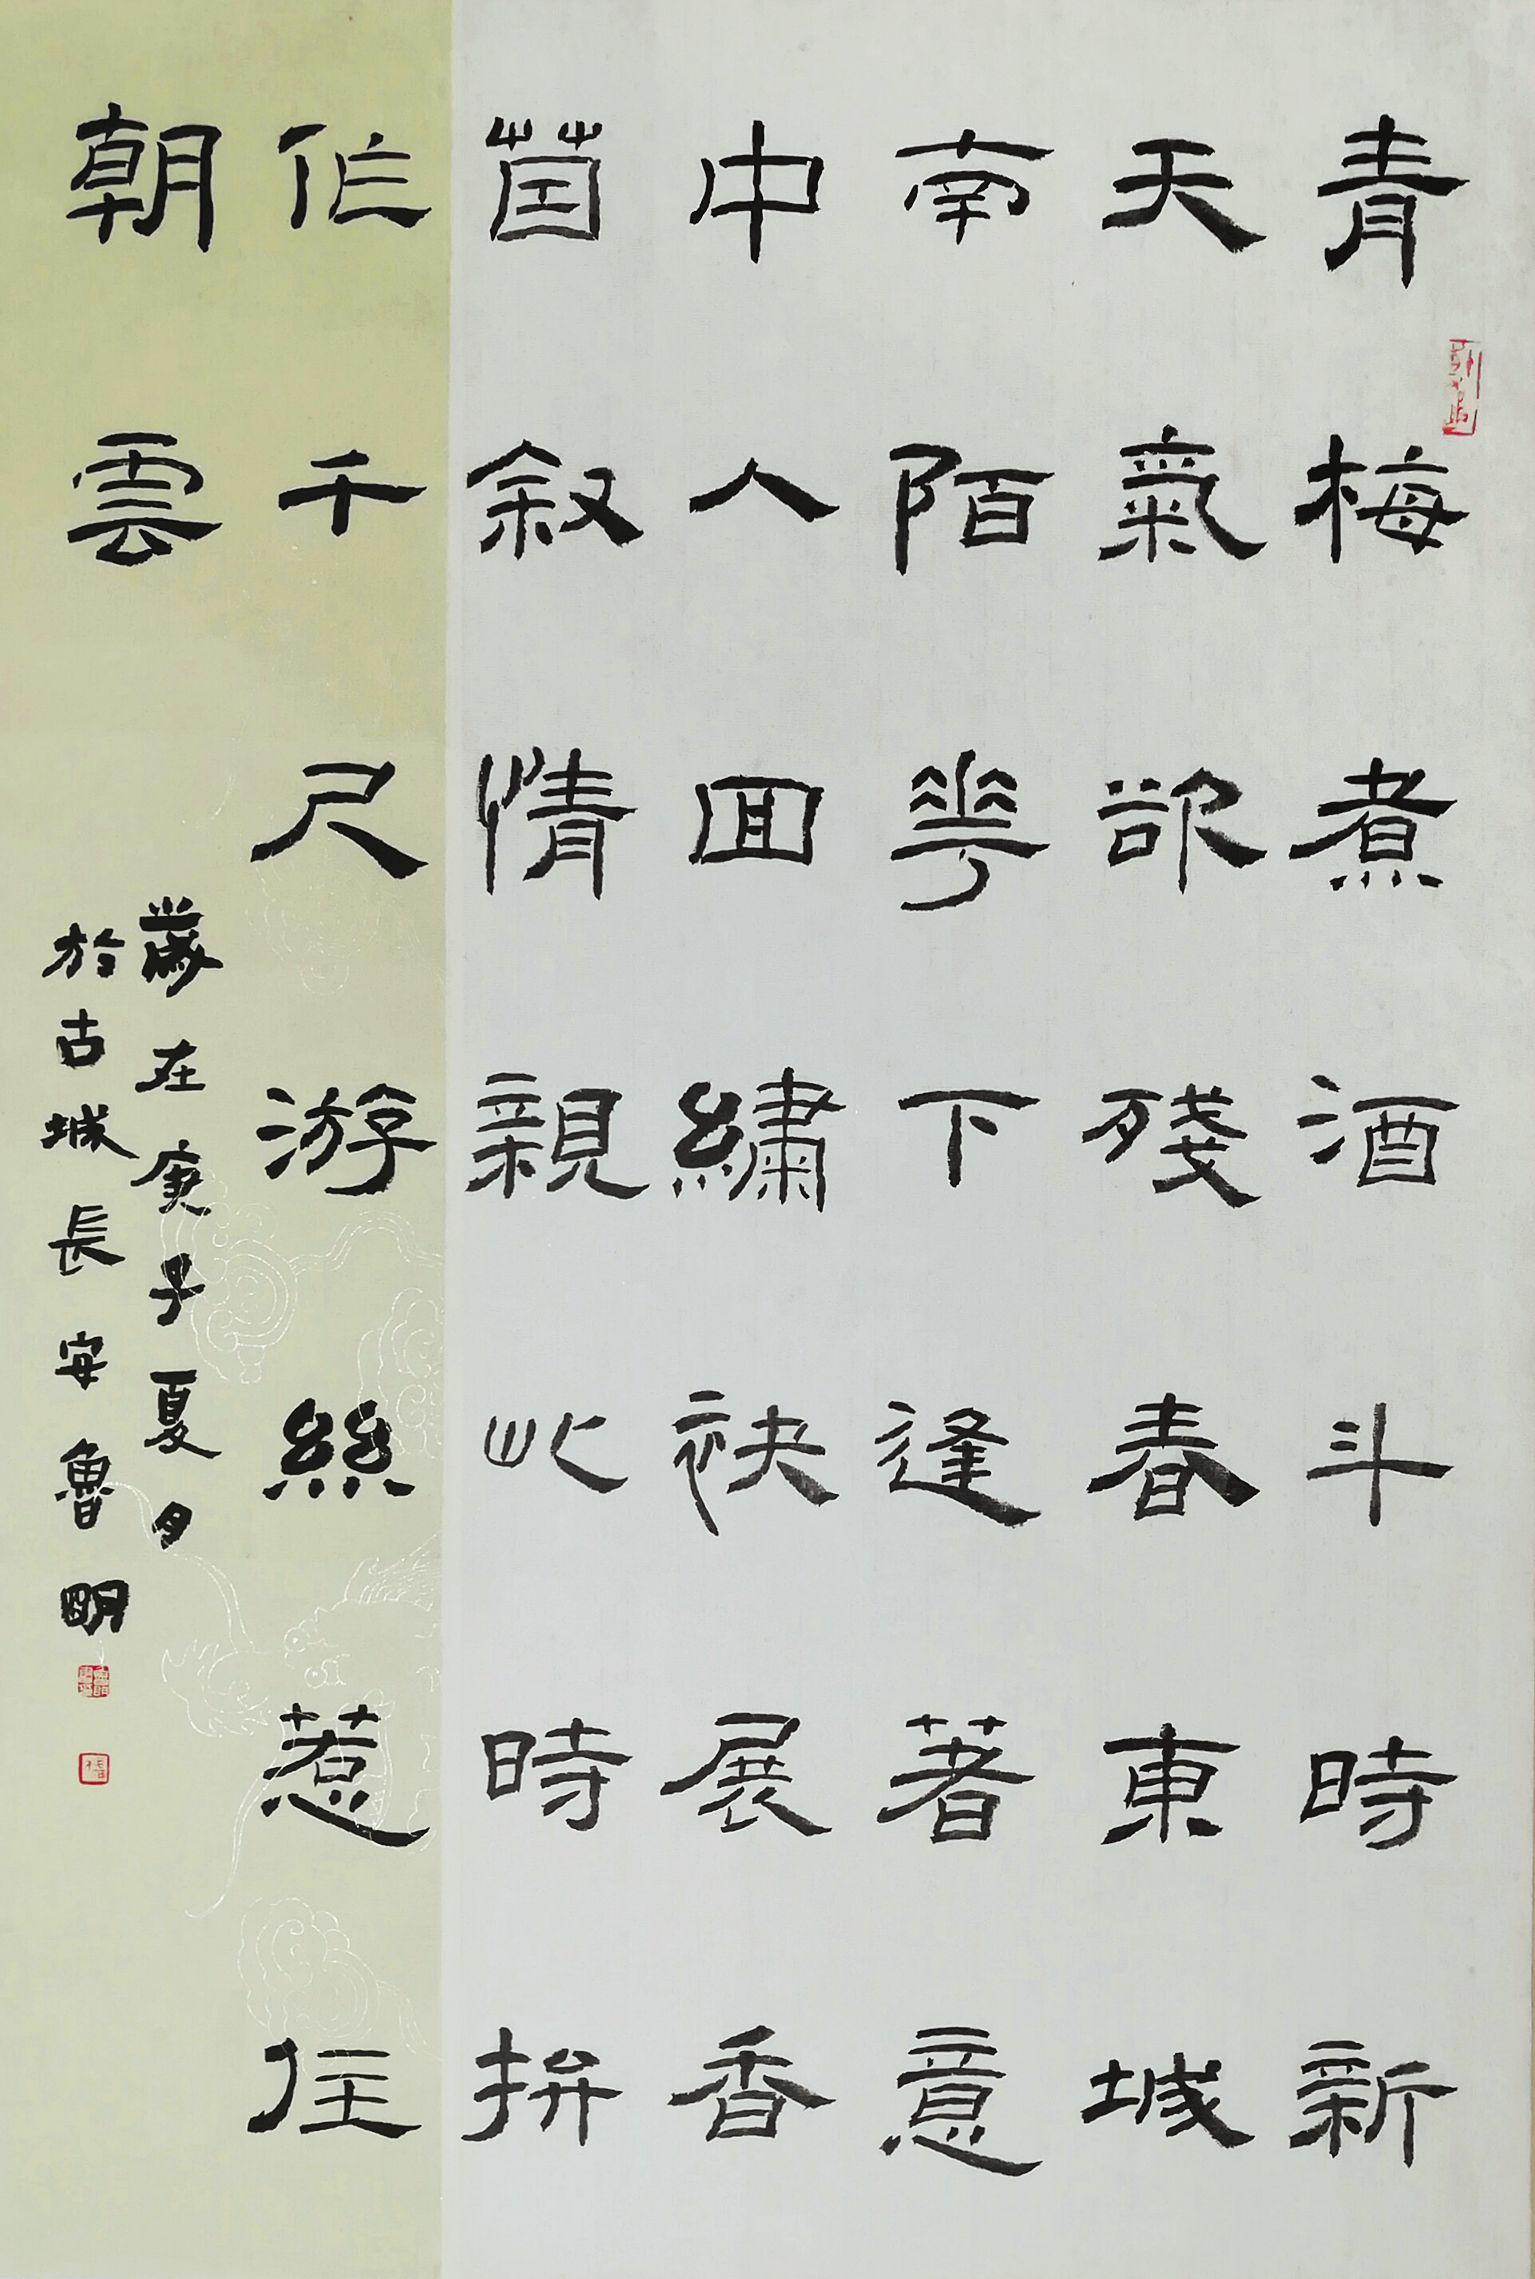 青梅煮酒斗時新
天氣欲殘春東城
南陌花下逢著意
中人回繡袂展香
茵敘情親此時拚
作千尺游絲惹住
朝雲
歲在庚子夏月
於古城長安魯明